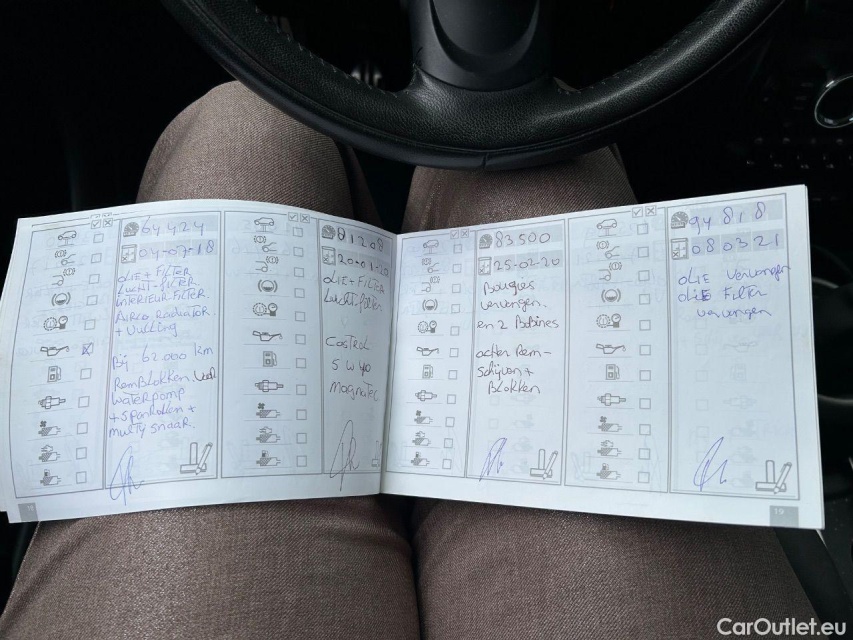 64424
04-07-18
OLIE + FILTER
LUCHT-FILTER
INTERIEUR FILTER
AIRCO RADIATOR
+ VULLING
Bij 62.000 km
Remblokken
waterpomp
+ spanrollen +
multy snaar.
81208
20-01-20
OLIE + FILTER
Lucht filter
CASTROL
5 W 40
MAGNATEC
83500
25-02-20
Bougies
vervangen.
en 2 Bobines
achter Rem-
schijven +
Blokken
94818
080321
OLIE Vervangen
OLIE Filter
vervangen
19
CarOutlet.eu